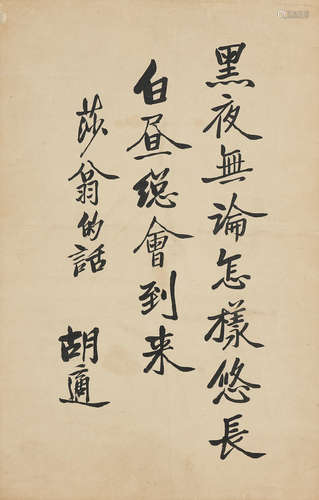 黑夜無論怎樣悠長
白昼總會到来
莎翁的話
胡適